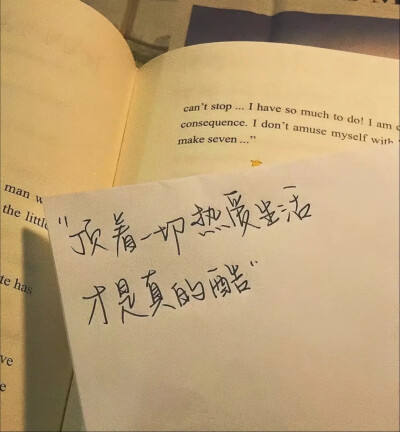 can't stop ... I have so much to do! I am
consequence. I don't amuse myself with
make seven ..."
man
the little
te has
ve
e
"顶着一切热爱生活
才是真的酷"